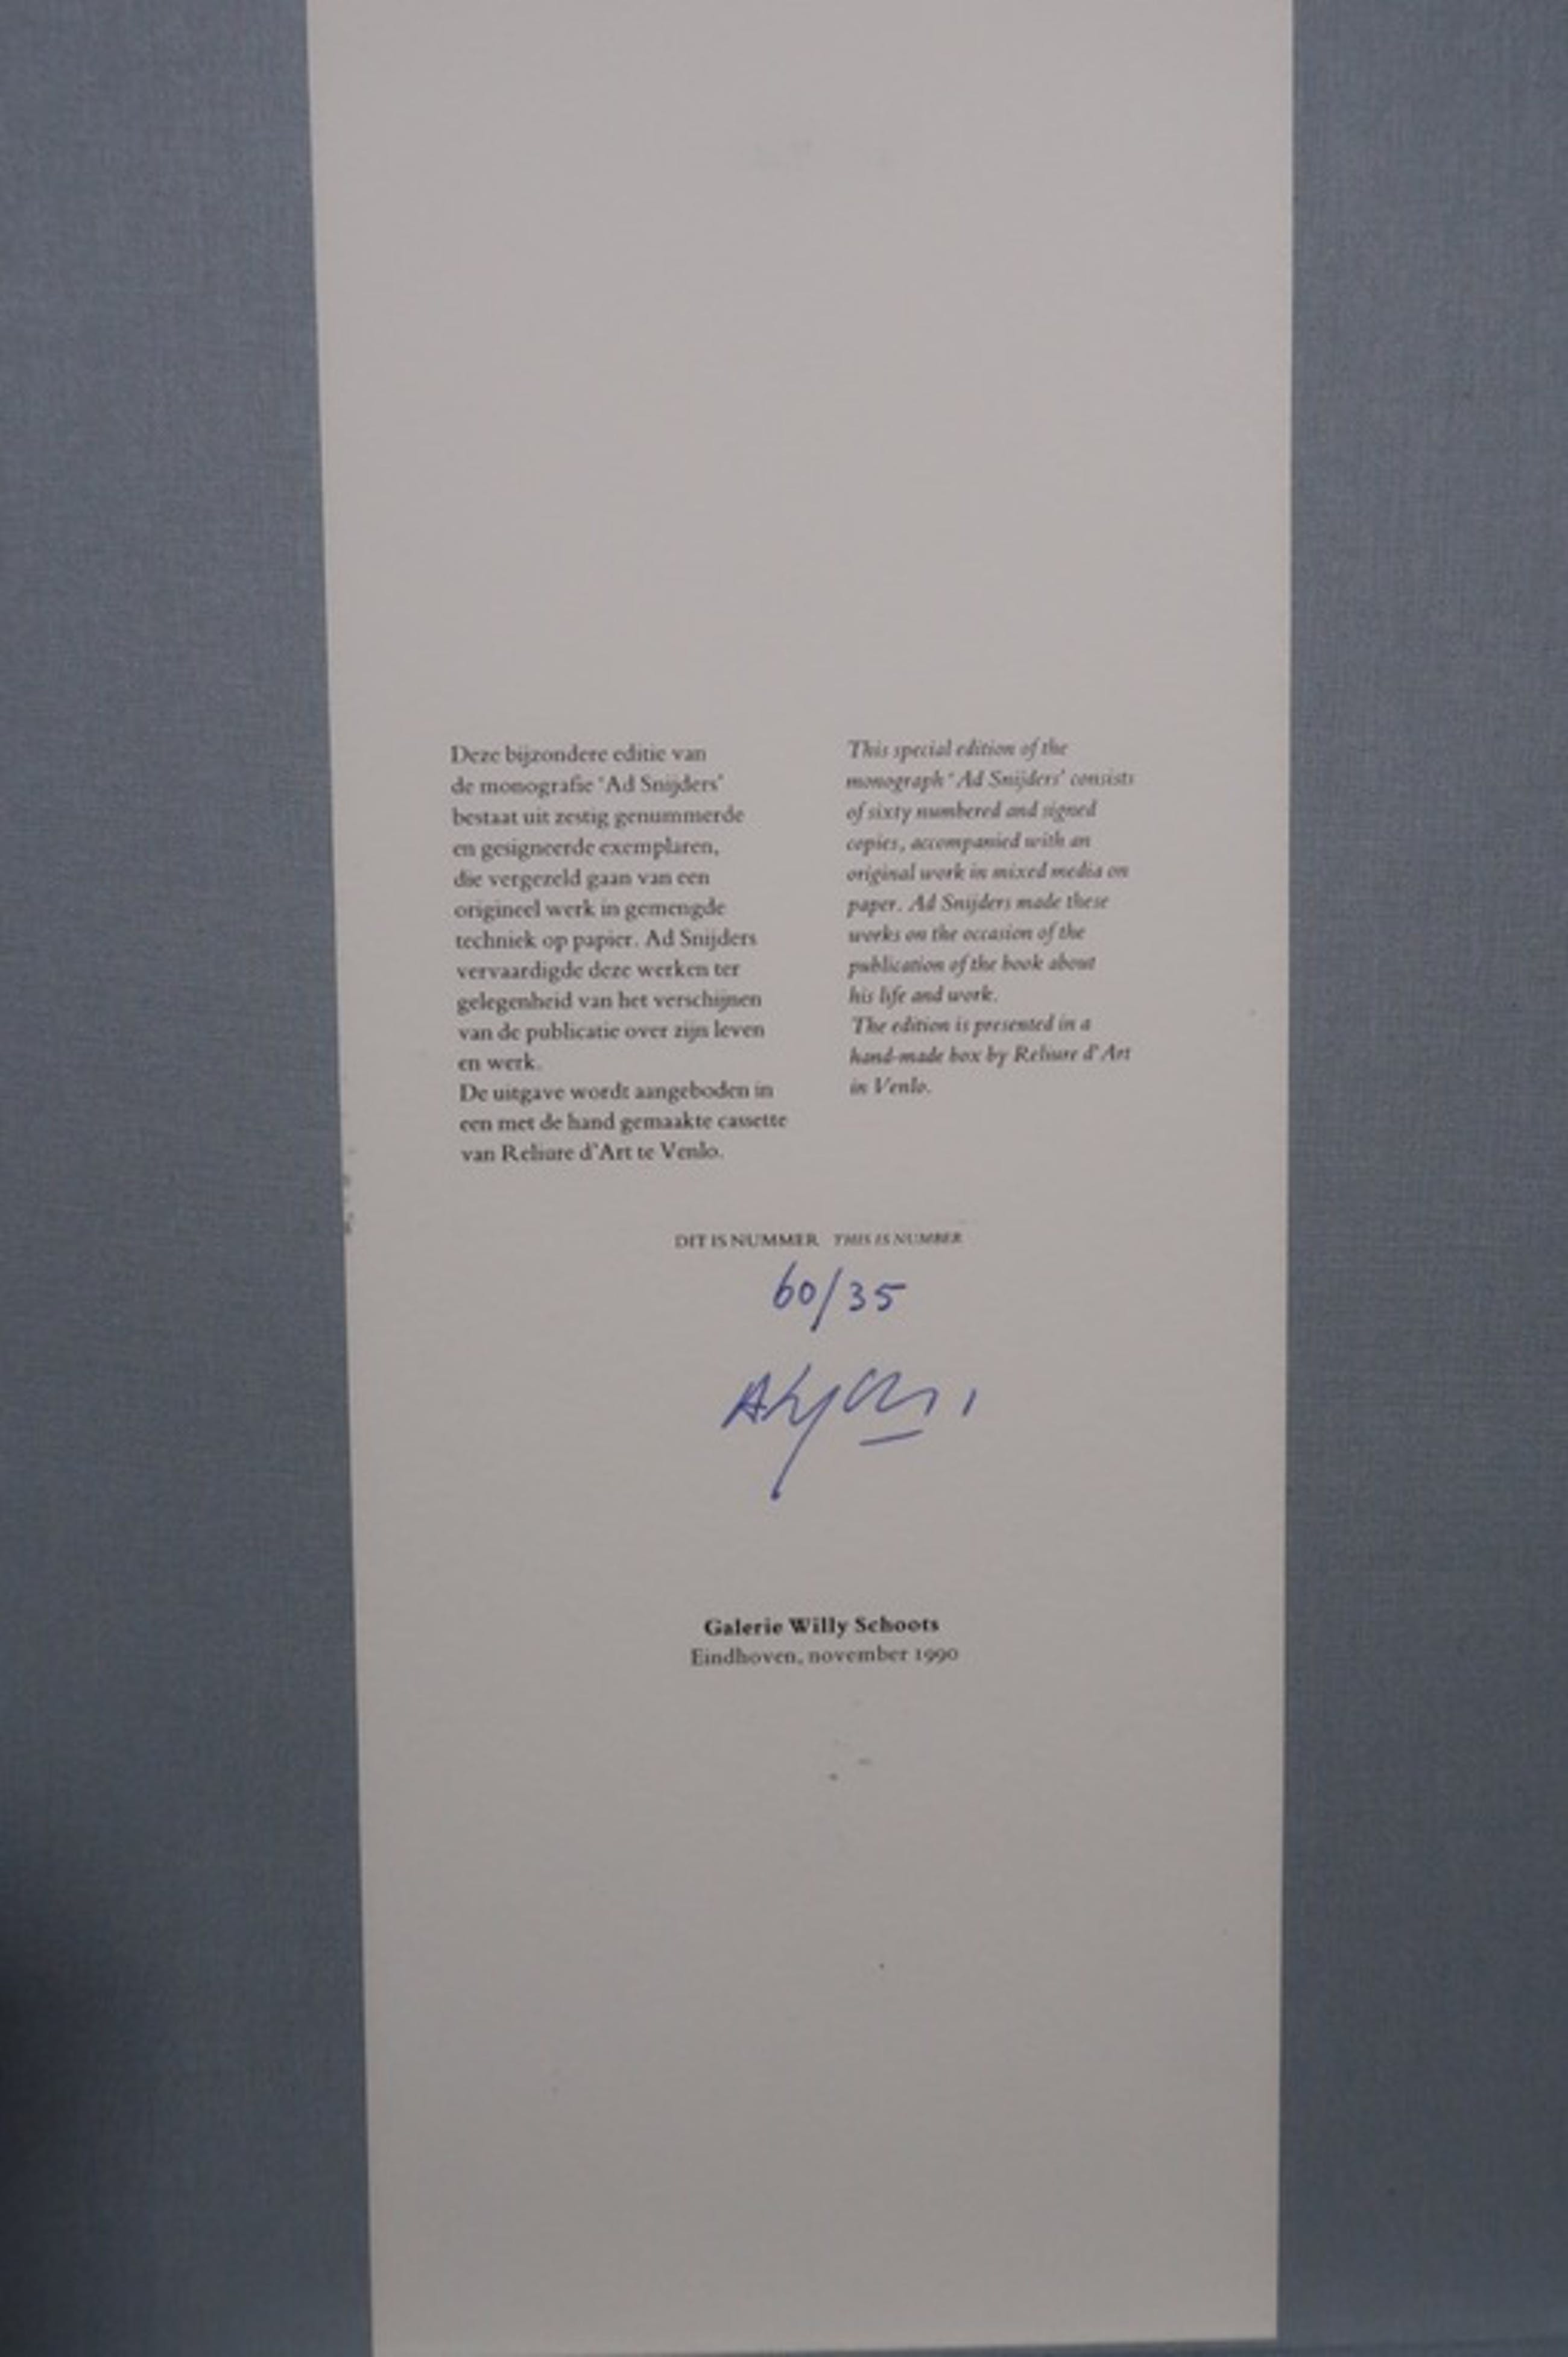 Deze bijzondere editie van
de monografie 'Ad Snijders'
bestaat uit zestig genummerde
en gesigneerde exemplaren,
die vergezeld gaan van een
origineel werk in gemengde
techniek op papier. Ad Snijders
vervaardigde deze werken ter
gelegenheid van het verschijnen
van de publicatie over zijn leven
en werk.
De uitgave wordt aangeboden in
een met de hand gemaakte cassette
van Reliure d'Art te Venlo.
This special edition of the
monograph 'Ad Snijders' consists
of sixty numbered and signed
copies, accompanied with an
original work in mixed media on
paper. Ad Snijders made these
works on the occasion of the
publication of the book about
his life and work.
The edition is presented in a
hand-made box by Reliure d'Art
in Venlo.
DIT IS NUMMER THIS IS NUMBER
60/35
Galerie Willy Schoots
Eindhoven, november 1990